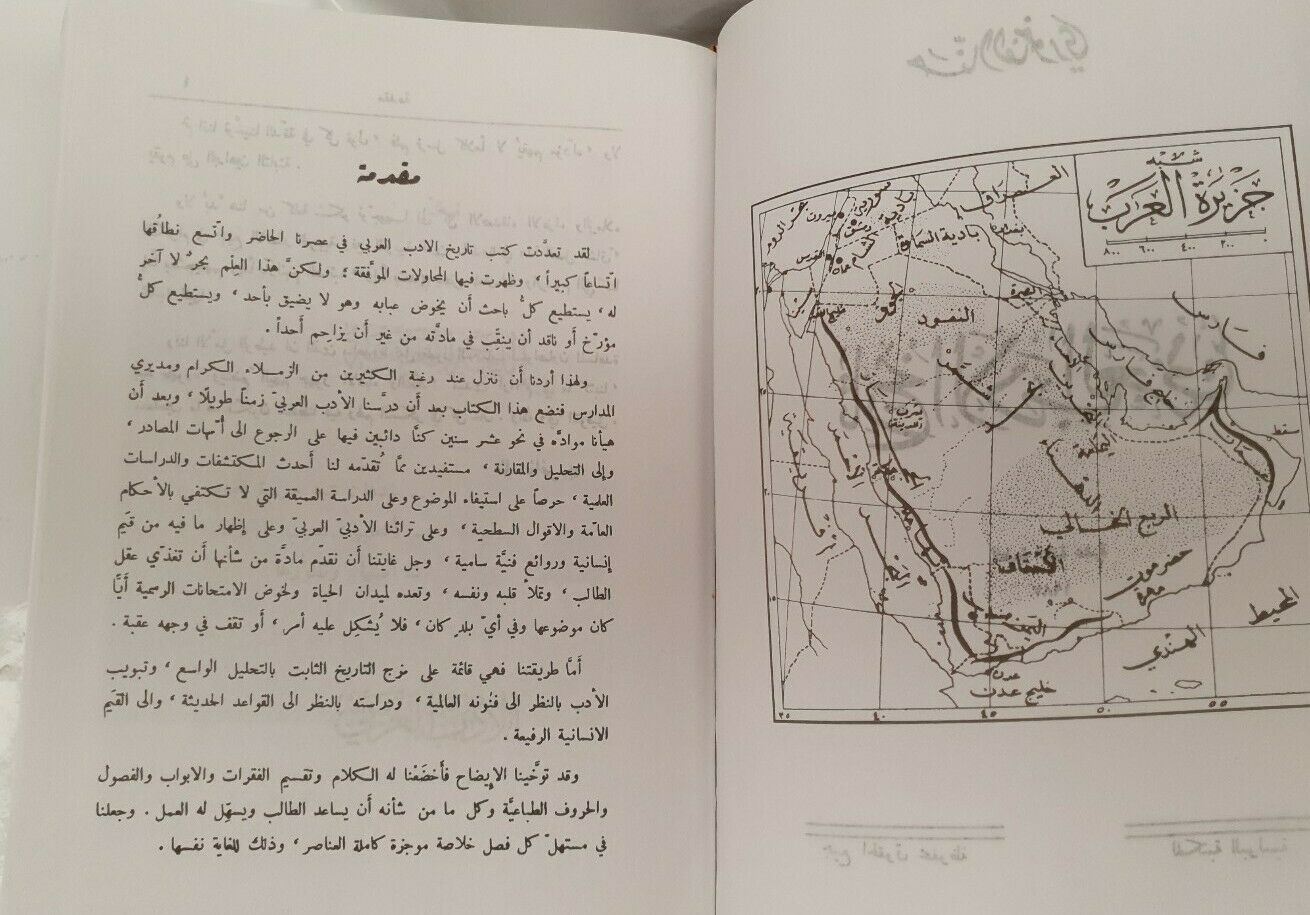 شبه
جزيرة العرب
٠ ٢٠٠ ٤٠٠ ٦٠٠ ٨٠٠
العراق
سورية
بيروت
دمشق
القدس
عمان
بادية السماوة
بغداد
البصرة
فارس
خليج فارس
النفود
نجد
شمر
اليمامة
الدهناء
الربع الخالي
الأحقاف
حضرموت
مهرة
عمان
اليمن
صنعاء
عدن
خليج عدن
المحيط
الهندي
٣٥ ٤٠ ٤٥ ٥٠ ٥٥
مقدمة
لقد تعدَّدت كتب تاريخ الادب العربي في عصرنا الحاضر واتّسع نطاقُها
اتّساعاً كبيراً ، وظهرت فيها المحاولات الموفَّقة ؛ ولكنَّ هذا العِلْم بحرٌ لا آخر
له ، يستطيع كلُّ باحث أن يخوض عبابه وهو لا يضيق بأحد ، ويستطيع كلُّ
مؤرّخ أو ناقد أن ينقِّب في مادَّته من غير أن يزاحِم أحداً .
ولهذا أردنا أن ننزل عند رغبة الكثيرين من الزملاء الكرام ومديري
المدارس فنضع هذا الكتاب بعد أن درَّسنا الأدب العربيّ زمناً طويلًا ، وبعد أن
هيأنا موادَّه في نحو عشر سنين كنَّا دائبين فيها على الرجوع الى أمّهات المصادر ،
وإلى التحليل والمقارنة ، مستفيدين ممَّا تُقدّمه لنا أحدث المكتشفات والدراسات
العلمية ، حرصاً على استيفاء الموضوع وعلى الدراسة العميقة التي لا تكتفي بالأحكام
العامّة والاقوال السطحية ، وعلى تراثنا الأدبيّ العربيّ وعلى إظهار ما فيه من قيَم
إنسانية وروائع فنيَّة سامية ، وجل غايتنا أن نقدّم مادَّة من شأنها أن تغذّي عقل
الطالب ، وتملأ قلبه ونفسه ، وتعده لميدان الحياة ولخوض الامتحانات الرسمية أيًّا
كان موضوعها وفي أيّ بلدٍ كان ، فلا يُشكِل عليه أمر ، أو تقف في وجهه عقبة .
أمَّا طريقتنا فهي قائمة على مزج التاريخ الثابت بالتحليل الواسع ، وتبويب
الأدب بالنظر الى فنُونه العالمية ، ودراسته بالنظر الى القواعد الحديثة ، والى القيَم
الانسانية الرفيعة .
وقد توخَّينا الإيضاح فأخضَعْنا له الكلام وتقسيم الفقرات والابواب والفصول
والحروف الطباعيَّة وكل ما من شأنه أن يساعد الطالب ويسهّل له العمل . وجعلنا
في مستهلّ كل فصل خلاصة موجزة كاملة العناصر ، وذلك للغاية نفسها .